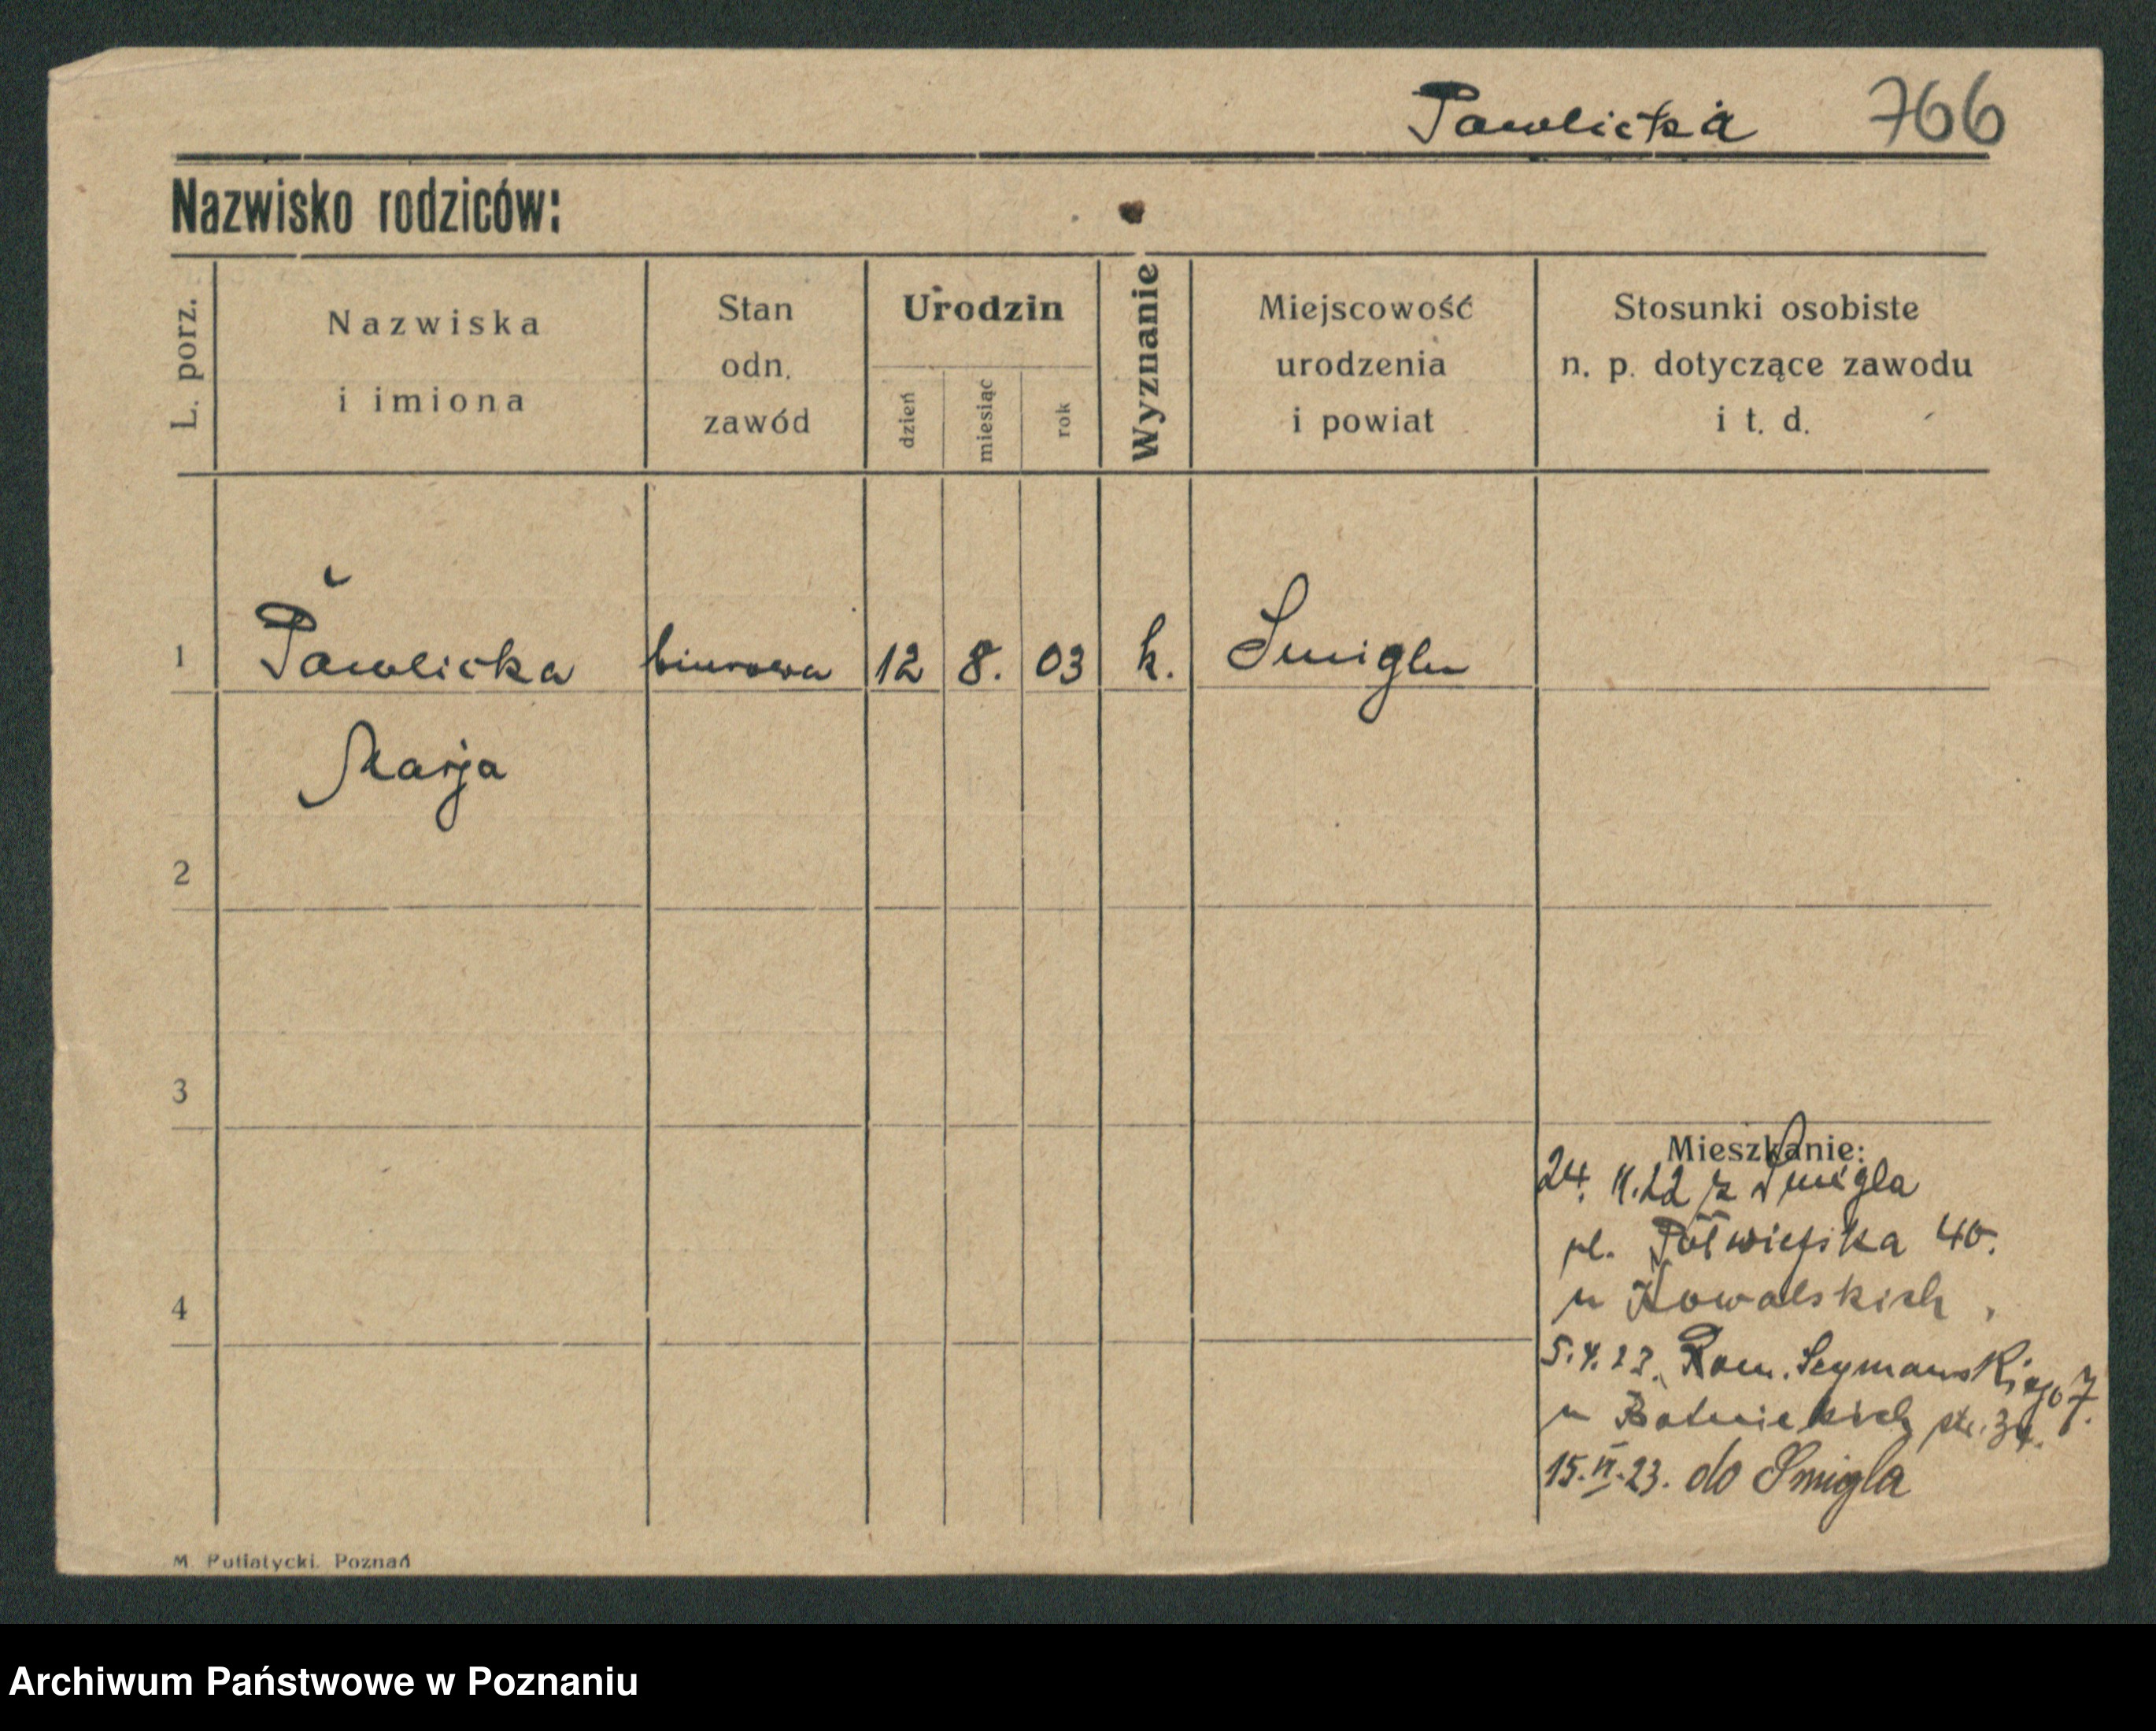 Pawlicka 766
Nazwisko rodziców:
L. porz.
Nazwiska
i imiona
Stan
odn.
zawód
Urodzin
dzień
miesiąc
rok
Wyznanie
Miejscowość
urodzenia
i powiat
Stosunki osobiste
n. p. dotyczące zawodu
i t. d.
1 Pawlicka biurowa 12 8. 03 k. Śmiglu
Marja
2
3
4
Mieszkanie:
24. 11.22 z Śmigla
pl. Półwiejska 40.
u Kowalskich
5.4.23. Rom. Szymańskiego 7.
u ptr.
15.VI.23. do Śmigla
M. Putiatycki. Poznań
Archiwum Państwowe w Poznaniu